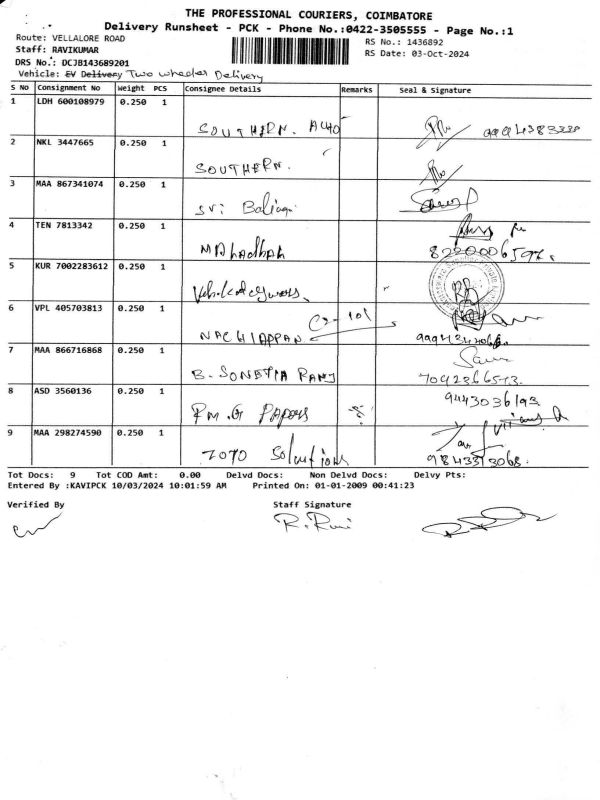 THE PROFESSIONAL COURIERS, COIMBATORE
Delivery Runsheet - PCK - Phone No.:0422-3505555 - Page No.:1
Route: VELLALORE ROAD
RS No.: 1436892
Staff: RAVIKUMAR
RS Date: 03-Oct-2024
DRS No.: DCJB143689201
Vehicle: EV Delivery Two wheeler Delivery
S No Consignment No Weight PCS Consignee Details Remarks Seal & Signature
1 LDH 600108979 0.250 1
SOUTHERN. AUTO
2 NKL 3447665 0.250 1
SOUTHERN.
3 MAA 867341074 0.250 1
Sri Balaji
4 TEN 7813342 0.250 1
Mahadhah 8220006597.
5 KUR 7002283612 0.250 1
6 VPL 405703813 0.250 1
NACHIAPPAN
7 MAA 866716868 0.250 1
B. SONETIA RANJ 7092366573.
8 ASD 3560136 0.250 1 9443036193
P.M.G Papers
9 MAA 298274590 0.250 1
ZOTO Solutions 9843373068.
Tot Docs: 9 Tot COD Amt: 0.00 Delvd Docs: Non Delvd Docs: Delvy Pts:
Entered By :KAVIPCK 10/03/2024 10:01:59 AM Printed On: 01-01-2009 00:41:23
Verified By Staff Signature
R. Ravi